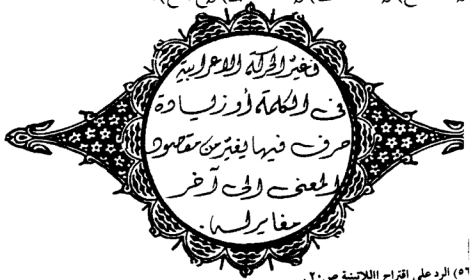 فتغير الحركة الاعرابية
في الكلمة أو زيادة
حرف فيها يغير من مقصود
المعنى الى آخر
مغاير له .
٥٦) الرد على اقتراح اللاتينية ص ٢٠ .